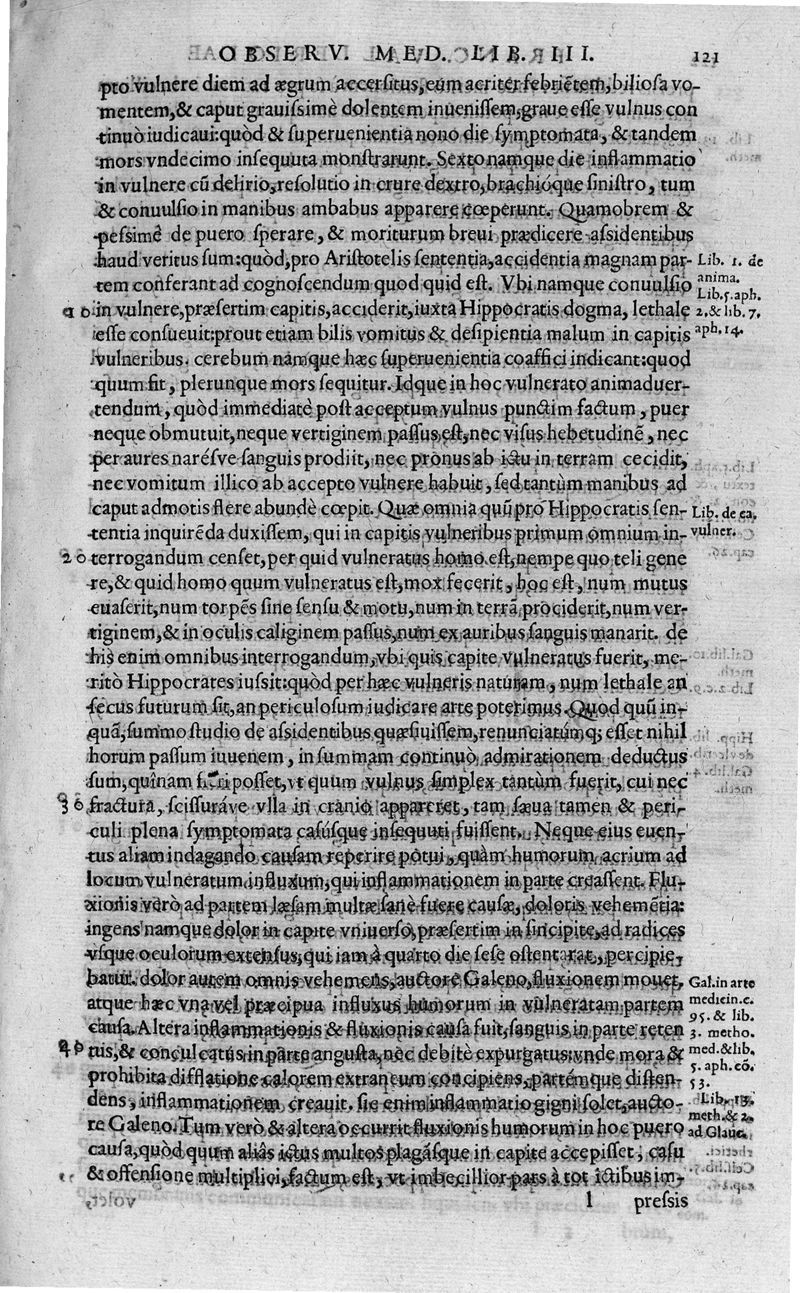 OBSERV. MED. LIB. III.
121
pto vulnere diem ad ægrum accersitus, eum acriter febriẽtem, biliosa vo-
mentem, & caput grauissimè dolentem inuenissem, graue esse vulnus con
tinuò iudicaui: quòd & superuenientia nono die symptomata, & tandem
mors vndecimo insequuta monstrarunt. Sexto namque die inflammatio
in vulnere cũ delirio, resolutio in crure dextro, brachióque sinistro, tum
& conuulsio in manibus ambabus apparere cœperunt. Quamobrem &
pessimè de puero sperare, & moriturum breui prædicere assidentibus
haud veritus sum: quòd, pro Aristotelis sententia, accidentia magnam par-
Lib. 1. de
tem conferant ad cognoscendum quod quid est. Vbi namque conuulsio
anima.
Lib. 5. aph.
10 in vulnere, præsertim capitis, acciderit, iuxta Hippocratis dogma, lethale
2. & lib. 7.
esse consueuit: prout etiam bilis vomitus & desipientia malum in capitis
aph. 14.
vulneribus. cerebum namque hæc superuenientia coaffici indicant: quod
quum fit, plerunque mors sequitur. Idque in hoc vulnerato animaduer-
tendum, quòd immediatè post acceptum vulnus punctim factum, puer
neque obmutuit, neque vertiginem passus est, nec visus hebetudinẽ, nec
per aures narésve sanguis prodiit, nec pronus ab ictu in terram cecidit,
nec vomitum illico ab accepto vulnere habuit, sed tantùm manibus ad
caput admotis flere abundè cœpit. Quæ omnia quũ pro Hippocratis sen-
Lib. de ca.
tentia inquirẽda duxissem, qui in capitis vulneribus primum omnium in-
vulner.
20 terrogandum censet, per quid vulneratus homo est, nempe quo teli gene
re, & quid homo quum vulneratus est, mox fecerit, hoc est, num mutus
euaserit, num torpẽs sine sensu & motu, num in terrã prociderit, num ver-
tiginem, & in oculis caliginem passus, num ex auribus sanguis manarit. de
his enim omnibus interrogandum, vbi quis capite vulneratus fuerit, me-
ritò Hippocrates iussit: quòd per hæc vulneris naturam, num lethale an
secus futurum sit, an periculosum iudicare arte poterimus. Quod quũ in-
quã, summo studio de assidentibus quæsiuissem, renunciatúmq; esset nihil
horum passum iuuenem, in summam continuò admirationem deductus
sum, quínam posset, vt quum vulnus simplex tantùm fuerit, cui nec
30 fractura, scissuráve vlla in cranio appareret, tam sæua tamen & peri-
culi plena symptomata casúsque insequuti fuissent. Neque eius euen-
tus aliam indagando causam reperire potui, quàm humorum acrium ad
locum vulneratum influxum, qui inflammationem in parte creassent. Flu-
xionis verò ad partem læsam multæ sanè fuere causæ, doloris vehemẽtia:
ingens namque dolor in capite vniuerso, præsertim in sincipite, ad radices
vsque oculorum extensus, qui iam à quarto die sese ostentarat, percipie-
batur. dolor autem omnis vehemens, auctore Galeno, fluxionem mouet,
Gal. in arte
atque hæc vna vel præcipua influxus humorum in vulneratam partem
medicin. c.
95. & lib.
causa. Altera inflammationis & fluxionis causa fuit, sanguis in parte reten
3. metho.
40 tus, & conculcatus in parte angusta, nec debitè expurgatus: vnde mora &
med. & lib.
prohibita difflatione calorem extraneum concipiens, partémque disten-
5. aph. cõ.
53.
dens, inflammationem creauit. sic enim inflammatio gigni solet, aucto-
Lib. 13.
meth. & 2.
re Galeno. Tum verò & altera occurrit fluxionis humorum in hoc puero
ad Glauc.
causa, quòd quum aliâs ictus multos plagásque in capite accepisset, casu
& offensione multiplici, factum est, vt imbecillior pars à tot ictibus im-
l pressis